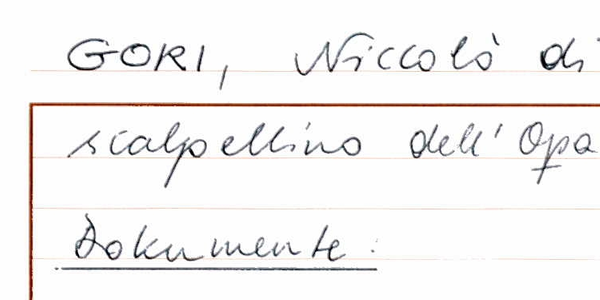 GORI, Niccolò di
scalpellino dell'Opa
Dokumente: